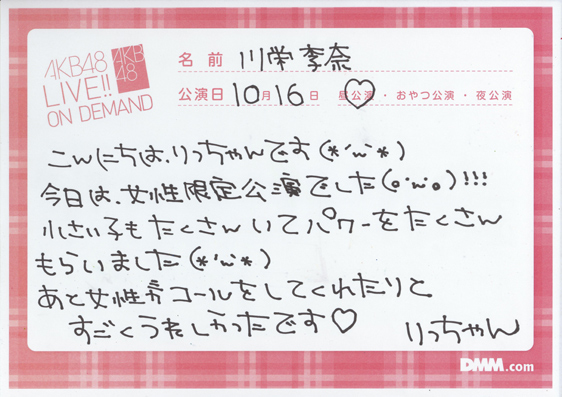 AKB48
LIVE!!
ON DEMAND
AKB
48
名前 川栄李奈
公演日 10月16日 昼公演・おやつ公演・夜公演
こんにちは、りっちゃんです(*'ω'*)
今日は、女性限定公演でした(o'ω'o)!!!
小さい子もたくさんいてパワーをたくさん
もらいました(*'ω'*)
あと女性がコールをしてくれたりと
すごくうれしかったです♡
りっちゃん
DMM.com